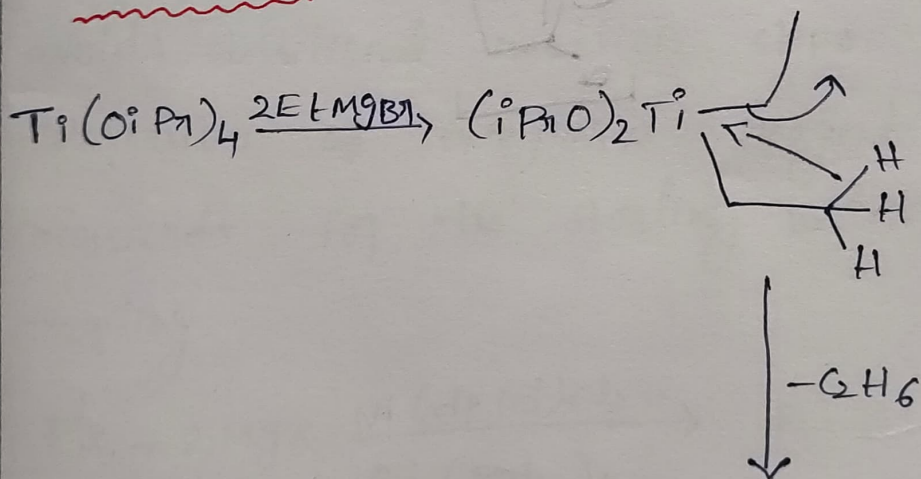 Ti(OiPr)4 2EtMgBr (iPrO)2Ti
H
H
H
-C2H6